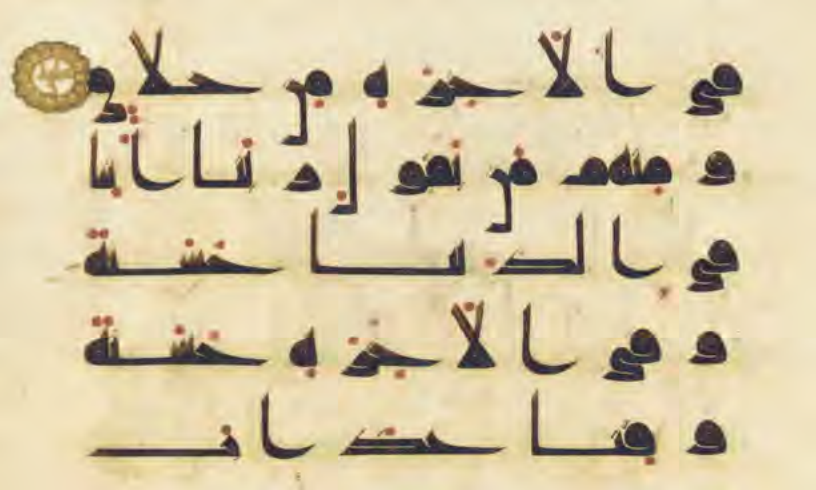 في الاخرة من خلق
ومنهم من يقول ربنا اتنا
في الدنيا حسنة
وفي الاخرة حسنة
وقنا عذاب